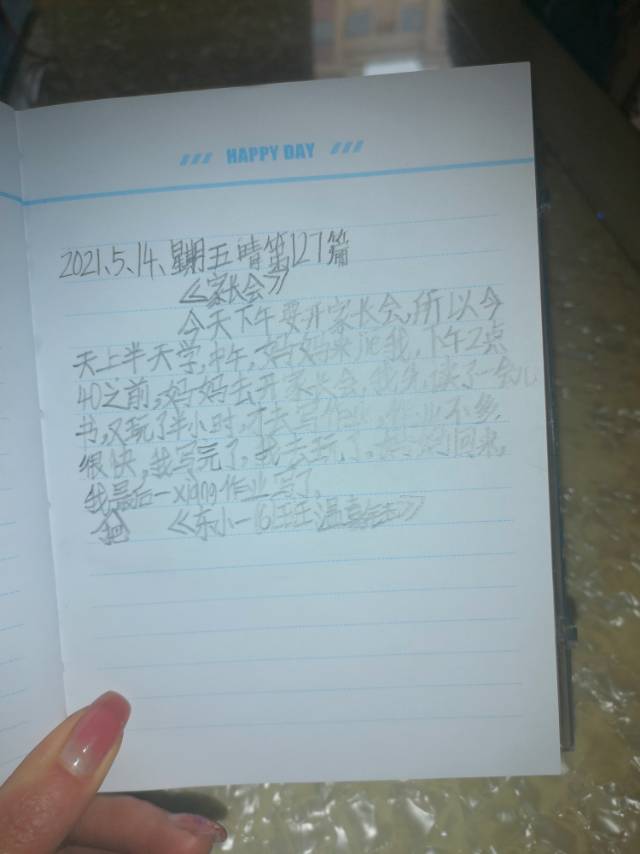 HAPPY DAY
2021.5.14.星期五晴第127篇
《家长会》
今天下午要开家长会,所以今
天上半天学,中午,妈妈来jie我,下午2点
40之前,妈妈去开家长会,我先读了一会儿
书,又玩了半小时,才去写作业,作业不多,
很快,我写完了,我去玩了,妈妈回来,
我最后一xiang作业写了。
把 《东小一16班